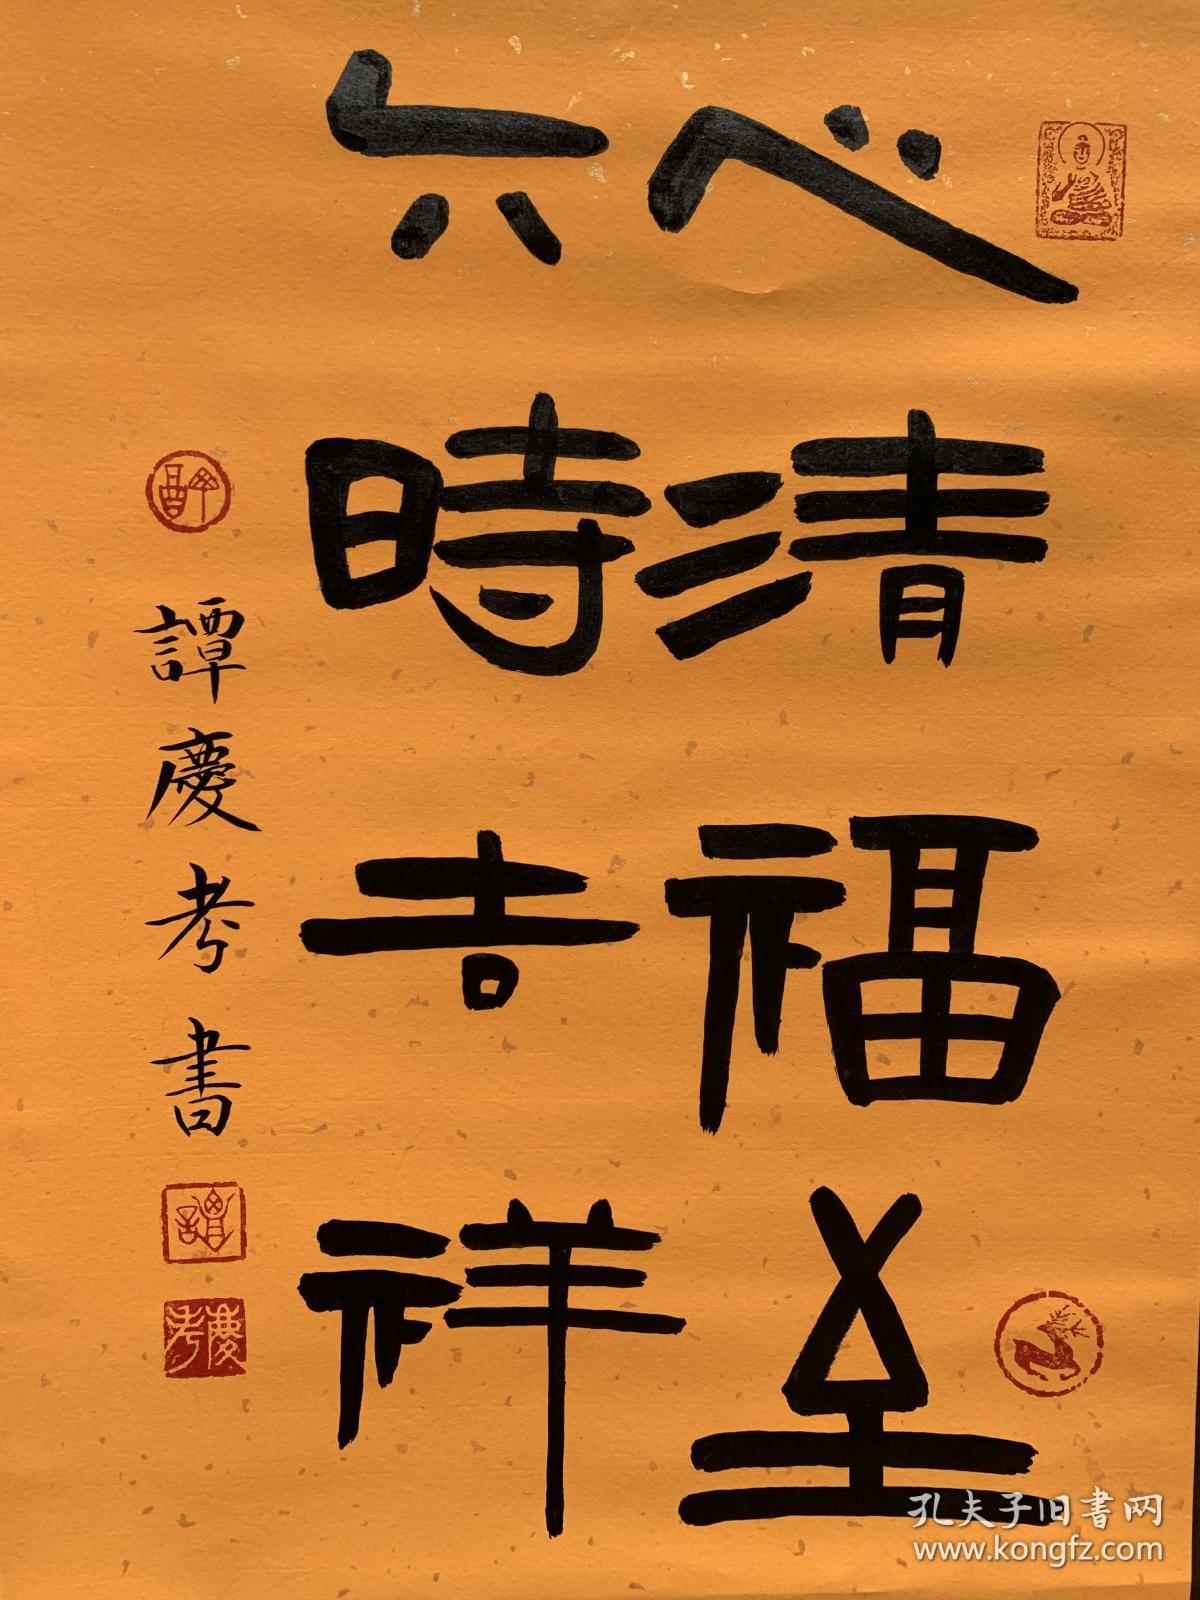 心清福至
六時吉祥
譚慶考書
譚
慶考
孔夫子旧书网
www.kongfz.com